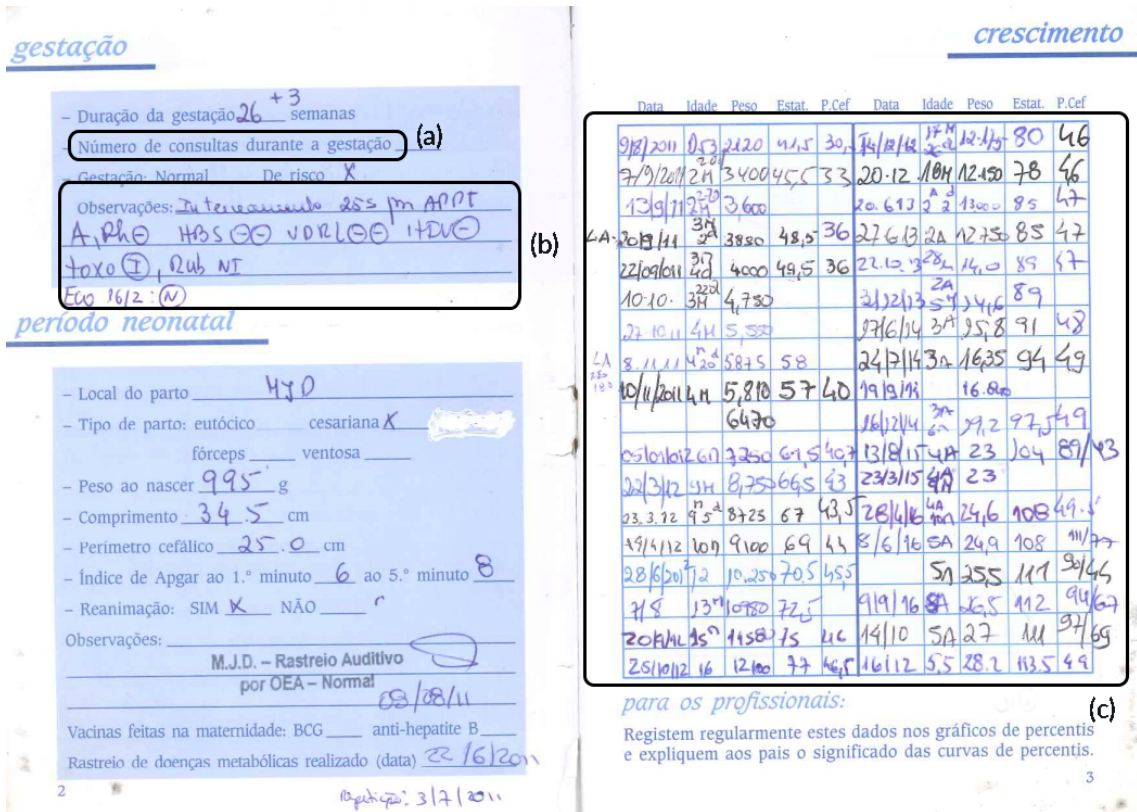 gestação
– Duração da gestação 26 +3 semanas
– Número de consultas durante a gestação
(a)
– Gestação: Normal De risco X
Observações: Internamento 25s por APPT
A, Rh⊖ HBS ⊖⊖ VDRL⊖⊖ HIV⊖
toxo I, Rub NI
Eco 16/2: N
(b)
período neonatal
– Local do parto MJD
– Tipo de parto: eutócico cesariana X
fórceps ventosa
– Peso ao nascer 995 g
– Comprimento 34.5 cm
– Perímetro cefálico 25.0 cm
– Índice de Apgar ao 1.º minuto 6 ao 5.º minuto 8
– Reanimação: SIM X NÃO
Observações:
M.J.D. – Rastreio Auditivo
por OEA – Normal
09/08/11
Vacinas feitas na maternidade: BCG anti-hepatite B
Rastreio de doenças metabólicas realizado (data) 22/6/2011
Repetição: 3/7/2011
2
crescimento
Data Idade Peso Estat. P.Cef Data Idade Peso Estat. P.Cef
9/8/2011 D53 2120 41,5 30, 14/12/12 17M 80 46
7/9/2011 2M 3400 45,5 33 20.12 18M 12.150 78 46
13/9/11 3,600 20.613 2A 2d 13000 85 47
LA- 20/9/11 3M 2d 3880 48,5 36 27.6.13 2A 12750 85 47
22/09/011 3M 4d 4000 49,5 36 22.10.3 28M 14,0 89 47
10.10. 3M 22d 4,750 2/12/13 2A 5M 14,6 89
27.10.11 4M 5,550 27/6/14 3A 15,8 91 48
LA 8.11.11 4M 20d 5875 58 24/7/14 3A 16,35 94 49
10/11/2011 4M 5,810 57 40 19/9/14 16.800
6470 16/12/14 3A 6M 19,2 97,5 49
05/01/012 6M 7250 61,5 40,7 13/8/15 4A 23 104 89/43
22/3/12 9M 8,750 66,5 43 23/3/15 4A 23
23.3.12 9M 5d 8725 67 43,5 28/4/16 4A 10M 24,6 108 49.5
19/4/12 10M 9100 69 44 8/6/16 5A 24,9 108 111/77
28/6/2012 12 10,250 70,5 45,5 5A 25,5 111 90/44
7/8 13M 10980 72,5 9/9/16 5A 26,5 112 94/67
20/9/12 15M 11580 75 46 14/10 5A 27 111 97/69
25/10/12 16 12100 77 46,5 16/12 5,5 28.2 113.5 49
(c)
para os profissionais:
Registem regularmente estes dados nos gráficos de percentis
e expliquem aos pais o significado das curvas de percentis.
3